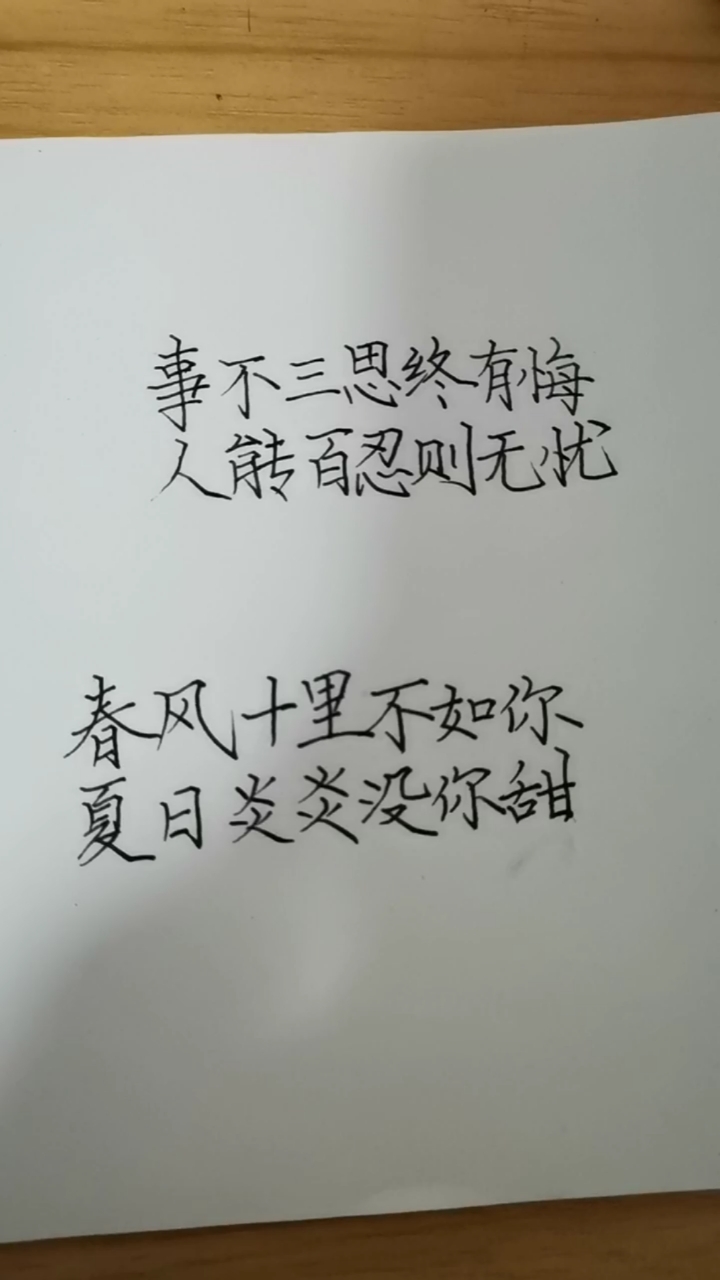 事不三思终有悔
人能百忍则无忧
春风十里不如你
夏日炎炎没你甜